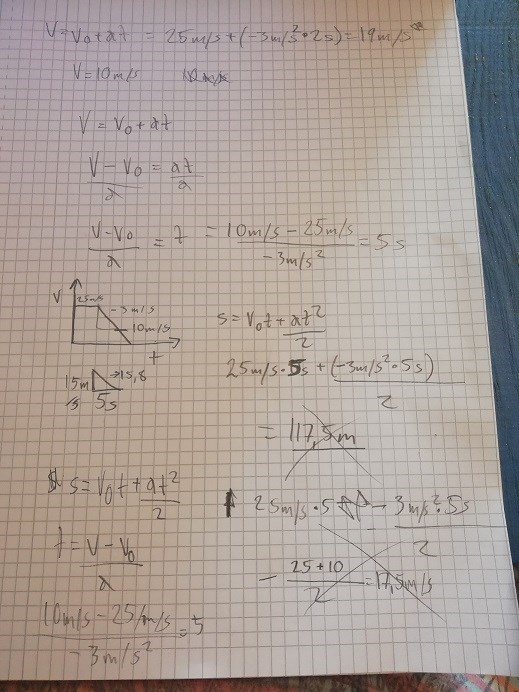 V = V₀ + at = 25m/s + (-3m/s² • 2s) = 19m/s
V = 10m/s
V = V₀ + at
V - V₀ / a = at / a
V - V₀ / a = t = 10m/s - 25m/s / -3m/s² = 5s
V 25m/s -3m/s
10m/s
t
s = V₀t + at² / 2
15m/s → 15,8
5s
25m/s • 5s + (-3m/s² • 5s) / 2
= 117,5m
s = V₀t + at² / 2
25m/s • 5 - 3m/s² • 5s / 2
t = V - V₀ / a
- 25 + 10 / 2 = 17,5m/s
10m/s - 25m/s / -3m/s² = 5